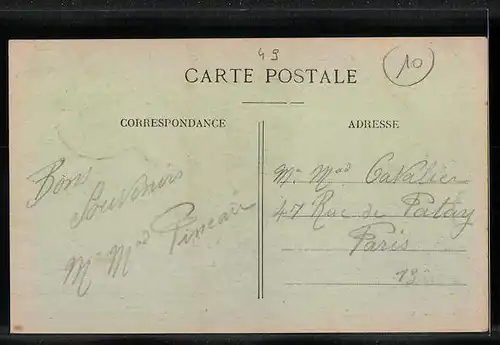 49
10
CARTE POSTALE
CORRESPONDANCE
Bons
Souvenirs
Mr Mad Pineau
ADRESSE
Mr Mad Cavalier
47 Rue de Patay
Paris
13